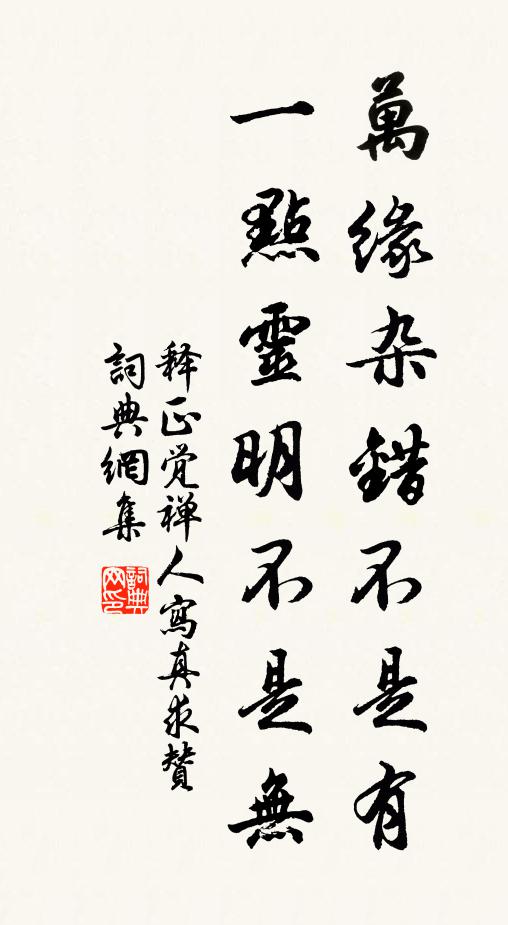 萬緣杂錯不是有
一點靈明不是無
释正觉禅人寫真求贊
詞典網集
詞典网印